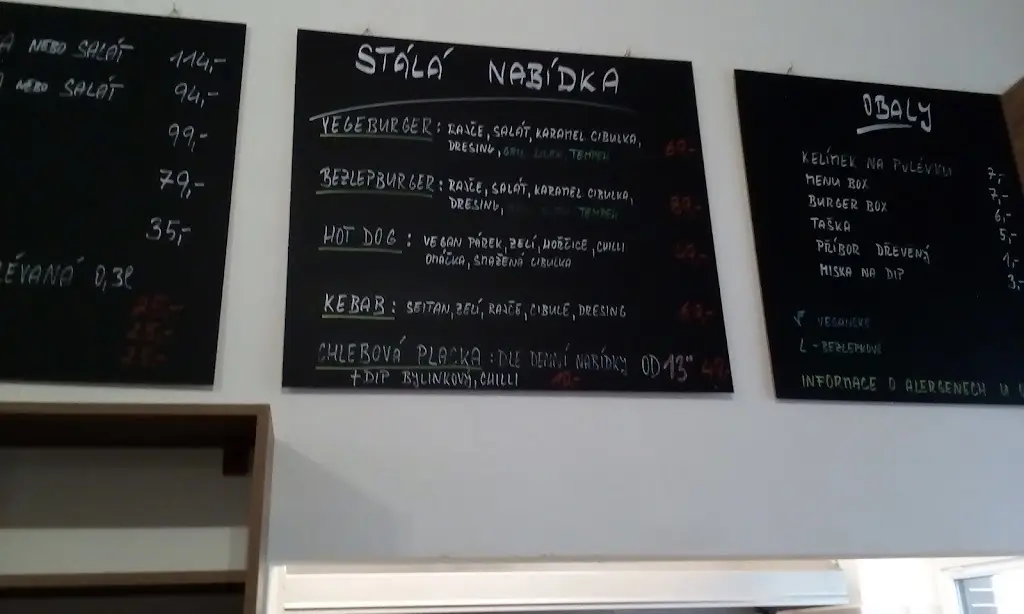 NEBO SALÁT 114,-
NEBO SALÁT 94,-
99,-
79,-
35,-
0,3l
STÁLÁ NABÍDKA
VEGEBURGER: RAJČE, SALÁT, KARAMEL CIBULKA,
DRESING, TEMPEH
BEZLEPBURGER: RAJČE, SALÁT, KARAMEL CIBULKA,
DRESING, TEMPEH
HOT DOG: VEGAN PÁREK, ZELÍ, HOŘČICE, CHILLI
OMÁČKA, SMAŽENÁ CIBULKA
KEBAB: SEITAN, ZELÍ, RAJČE, CIBULE, DRESING
CHLEBOVÁ PLACKA: DLE DENNÍ NABÍDKY OD 13"
+ DIP BYLINKOVÝ, CHILLI
OBALY
KELÍMEK NA POLÉVKU 7,-
MENU BOX 7,-
BURGER BOX 6,-
TAŠKA 5,-
PŘÍBOR DŘEVENÝ 1,-
MISKA NA DIP 3,-
V VEGANSKÉ
L - BEZLEPKOVÉ
INFORMACE O ALERGENECH U